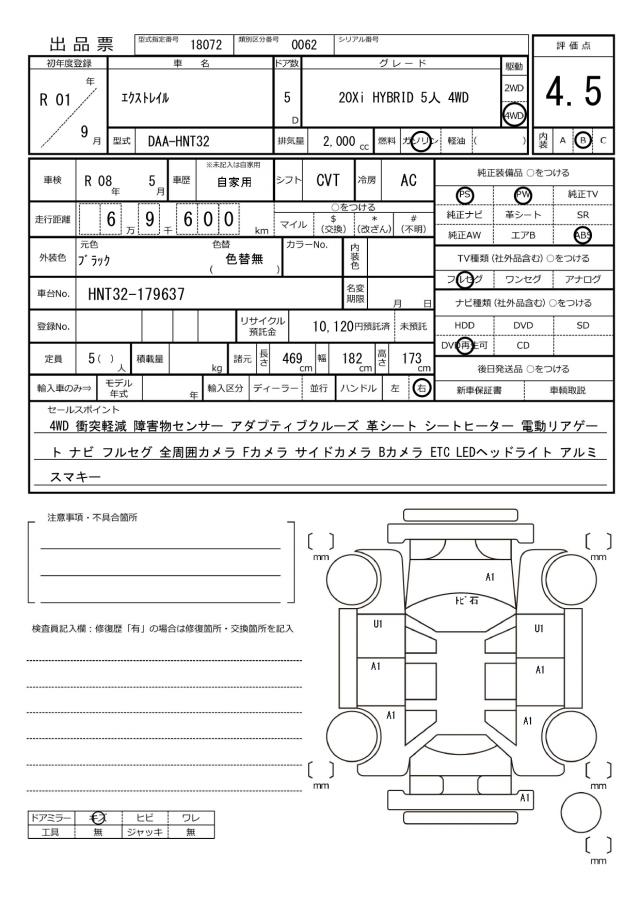 出品票
型式指定番号 18072 類別区分番号 0062 シリアル番号
評価点
4.5
内装 A B C
初年度登録 車名 ドア数 グレード 駆動
R 01 年 9 月
エクストレイル
5 D
20Xi HYBRID 5人 4WD
2WD
4WD
型式 DAA-HNT32 排気量 2,000 cc 燃料 ガソリン 軽油 ( )
車検 R 08 年 5 月 車歴 ※未記入は自家用 自家用 シフト CVT 冷房 AC
走行距離 6 万 9 千 6 0 0 km
○をつける
マイル $ (交換) * (改ざん) # (不明)
外装色 元色 ブラック 色替 ( 色替無 ) カラーNo. 内装色
車台No. HNT32-179637 名変期限 月 日
登録No. リサイクル預託金 10,120円預託済 未預託
定員 5( ) 人 積載量 kg 諸元 長さ 469 cm 幅 182 cm 高さ 173 cm
輸入車のみ⇒ モデル年式 年 輸入区分 ディーラー 並行 ハンドル 左 右
純正装備品 ○をつける
PS PW 純正TV
純正ナビ 革シート SR
純正AW エアB ABS
TV種類 (社外品含む) ○をつける
フルセグ ワンセグ アナログ
ナビ種類 (社外品含む) ○をつける
HDD DVD SD
DVD再生可 CD
後日発送品 ○をつける
新車保証書 車輌取説
セールスポイント
4WD 衝突軽減 障害物センサー アダプティブクルーズ 革シート シートヒーター 電動リアゲー
ト ナビ フルセグ 全周囲カメラ Fカメラ サイドカメラ Bカメラ ETC LEDヘッドライト アルミ
スマキー
注意事項・不具合箇所
検査員記入欄：修復歴「有」の場合は修復箇所・交換箇所を記入
ドアミラー キズ ヒビ ワレ
工具 無 ジャッキ 無
〔 〕
mm
〔 〕
mm
A1
トビ石
U1
U1
A1
A1
A1
A1
〔 〕
mm
〔 〕
mm
A1
〔 〕
mm